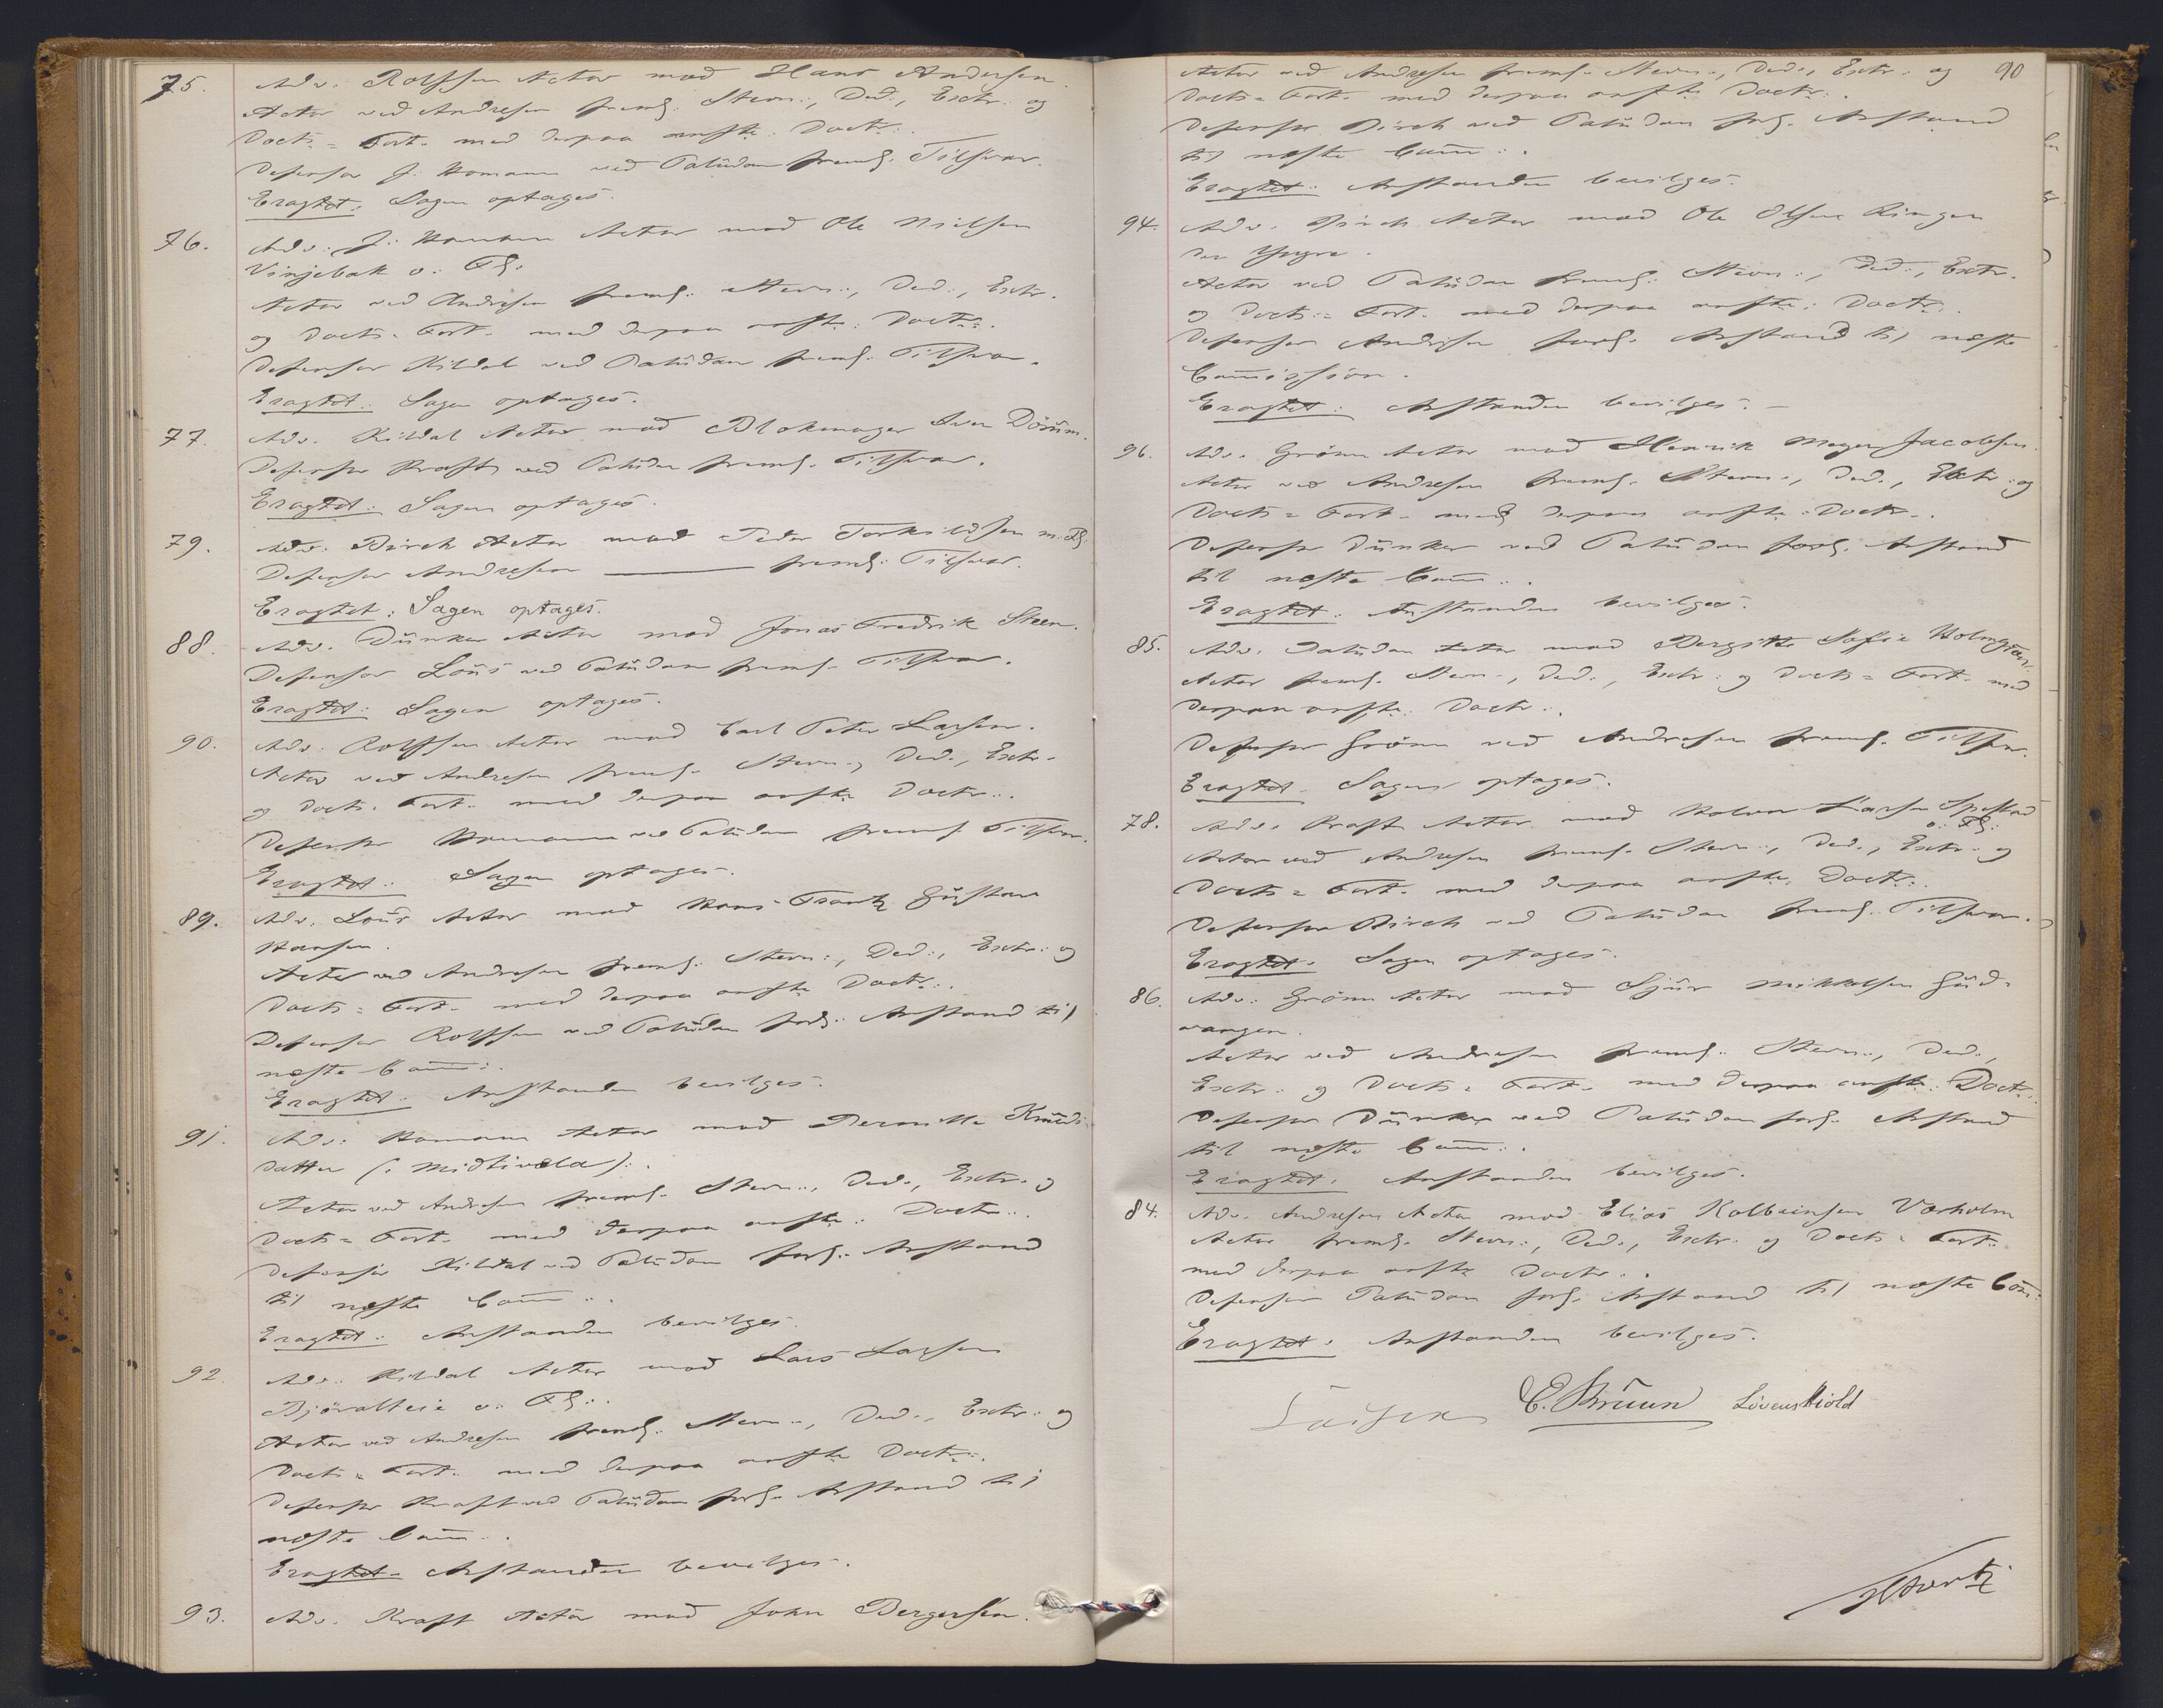 75. Adv. Rolffsen Actor mod Hans Andersen.
Actor ved Andresen freml. Stevn:, Ded:, Extr: og
Docts = Fort. med derpaa anfte: Doctr:.
Defensor J: Homann ved Paludan freml. Tilsvar.
Eragtet: Sagen optages.
76. Adv: J: Homann Actor mod Ole Nielsen
Vinjebak o: Fl:
Actor ved Andresen freml: Stevn:, Ded:, Extr.
og Docts. Fort. med derpaa anfte: Doctr:.
Defensor Kildal ved Paludan freml: Tilsvar.
Eragtet: Sagen optages.
77. Adv. Kildal Actor mod Blokmager Iver Döhlm.
Defensor Kraft ved Paludan freml. Tilsvar.
Eragtet: Sagen optages.
79. Adv: Birch Actor mod Peder Torkildsen m. Fl.
Defensor Andresen ——— freml: Tilsvar.
Eragtet: Sagen optages.
88. Adv. Dünker Actor mod Jonas Fredrik Steen.
Defensor Lous ved Paludan freml. Tilsvar.
Eragtet: Sagen optages.
90. Adv. Rolffsen Actor mod Carl Peter Larsen.
Actor ved Andresen freml. Stevn:, Ded., Extr.
og Docts. Fort. med derpaa anfte Doctr:.
Defensor Homann ved Paludan freml. Tilsvar.
Eragtet: Sagen optages.
89. Adv. Lous Actor mod Hans Frantz Gustav
Hansen.
Actor ved Andresen freml: Stevn:, Ded:, Extr: og
Docts = Fort. med derpaa anfte Doctr:.
Defensor Rolffsen ved Paludan forl: Anstand til
næste Comm:.
Eragtet: Anstanden bevilges.
91. Adv: Homann Actor mod Pernille Knuds-
datter (: Midtivela):.
Actor ved Andresen freml. Stevn:, Ded., Extr. og
Docts = Fort. med derpaa anfte: Doctr:.
Defensor Kildal ved Paludan forl: Anstand
til næste Comm:.
Eragtet: Anstanden bevilges.
92. Adv: Kildal Actor mod Lars Larsen
Björalteie o: Fl:.
Actor ved Andresen freml. Stevn:, Ded., Extr: og
Docts = Fort. med derpaa anfte Doctr:.
Defensor Kraft ved Paludan forl. Anstand til
næste Comm:.
Eragtet. Anstanden bevilges.
93. Adv. Kraft Actor mod John Bergersen.
90
Actor ved Andresen freml. Stevn:, Ded., Extr: og
Docts = Fort. med derpaa anfte Doctr:.
Defensor Birch ved Paludan forl. Anstand
til næste Comm:.
Eragtet: Anstanden bevilges.
94. Adv. Birch Actor mod Ole Olsen Ringen
den Yngre.
Actor ved Paludan freml: Stevn:, Ded:, Extr.
og Docts: = Fort. med derpaa anfte: Doctr:.
Defensor Andresen forl. Anstand til næste
Commission.
Eragtet: Anstanden bevilges. –
96. Adv. Grönn Actor mod Henrik Meyer Jacobsen.
Actor ved Andresen freml. Stevn:, Ded., Extr: og
Docts = Fort. med derpaa anfte: Doctr:.
Defensor Dünker ved Paludan forl. Anstand
til næste Comm:.
Eragtet: Anstanden bevilges.
85. Adv. Paludan Actor mod Bergitte Sofie Holmgren.
Actor freml. Stevn:, Ded., Extr: og Docts = Fort. med
derpaa anfte: Doctr:.
Defensor Grönn ved Andresen freml. Tilsvar.
Eragtet. Sagen optages.
78. Adv. Kraft Actor mod Halvor Larsen
o: Fl:
Actor ved Andresen freml. Stevn:, Ded., Extr: og
Docts = Fort. med derpaa anfte. Doctr:.
Defensor Birch ved Paludan freml. Tilsvar.
Eragtet: Sagen optages.
86. Adv: Grönn Actor mod Sjur Mikkelsen Gud-
vangen.
Actor ved Andresen freml: Stevn:, Ded.,
Extr: og Docts = Fort. med derpaa anfte: Doctr:.
Defensor Dünker ved Paludan forl. Anstand
til næste Comm:.
Eragtet: Anstanden bevilges.
84. Adv. Andresen Actor mod Elias Kolbeinsen Varholm
Actor freml. Stevn:, Ded., Extr: og Docts = Fort.
med derpaa anfte Doctr:.
Defensor Paludan forl. Anstand til næste Com:
Eragtet: Anstanden bevilges.
E. Bruun Lövenskiold